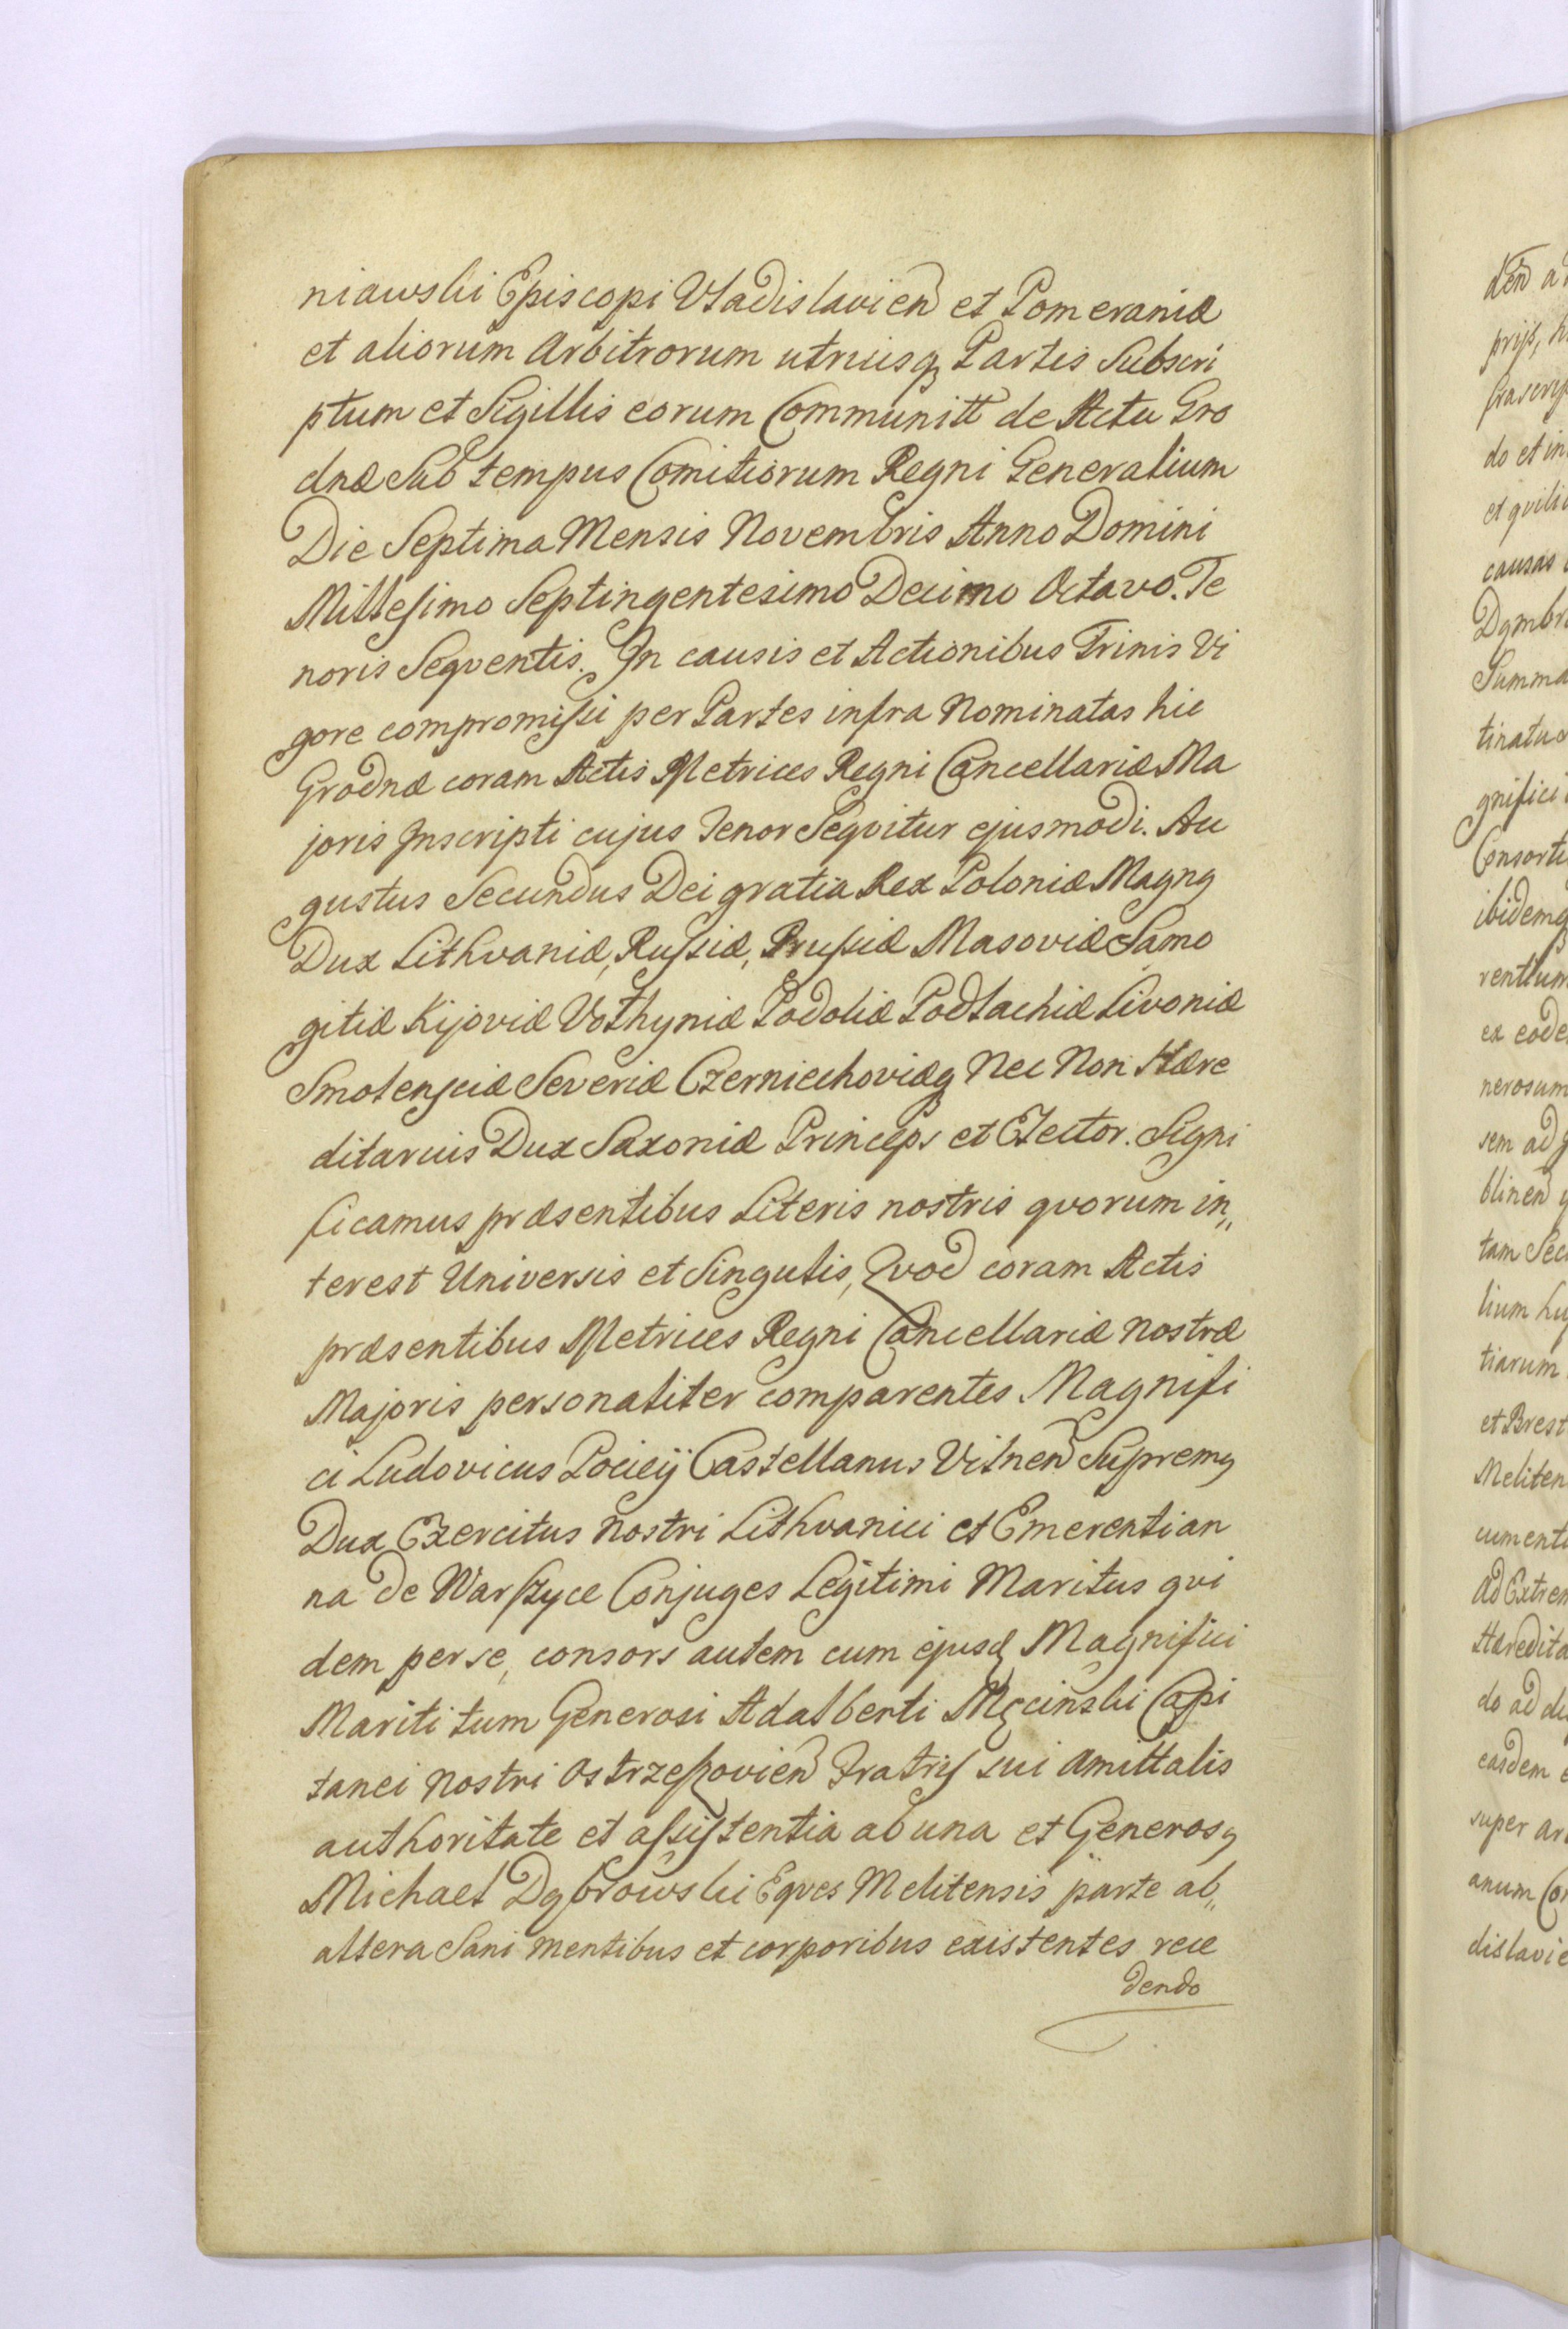 niawski Episcopi Vladislavien et Pomeraniæ
et aliorum Arbitrorum utriusq Partis Subscri
ptum et Sigillis eorum Communitt de Actu Gro
dnæ Sub tempus Comitiorum Regni Generalium
Die Septima Mensis Novembris Anno Domini
Millesimo Septingentesimo Decimo Octavo. Te
noris Seqventis. In causis et Actionibus Trinis Vi
gore compromissi per Partes infra Nominatas hic
Grodnæ coram Actis Metrices Regni Cancellariæ Ma
joris Inscripti cujus Tenor Seqvitur ejusmodi. Au
gustus Secundus Dei gratia Rex Poloniæ Magnq
Dux Lithvaniæ, Russiæ, Prussiæ Masoviæ Samo
gitiæ Kijoviæ Volhyniæ Podoliæ Podlachiæ Livoniæ
Smolensciæ Severiæ Czerniechoviæq Nec Non Hære
ditarius Dux Saxoniæ Princeps et Elector. Signi
ficamus præsentibus Literis nostris qvorum in„
terest Universis et Singulis, Qvod coram Actis
præsentibus Metrices Regni Cancellariæ Nostræ
Majoris personaliter comparentes Magnifi
ci Ludovicus Pociey Castellanus Vilnen Supremq
Dux Exercitus Nostri Lithvanici et Emerentian
na de Warszyce Conjuges Legitimi Maritus qvi
dem per se, consors autem cum ejusd Magnifici
Mariti tum Generosi Adalberti Męcinski Capi
tanei Nostri Ostrzeszovien Fratris sui Amittalis
authoritate et assistentia ab una et Generosq
Michael Dąbrowski Eqves Melitensis parte ab„
altera Sani mentibus et corporibus existentes rece
dendo
den
prijs,
do et in
et qvili
causas
Dąmbr
Summa
tinatu
gnifici
Consorti
ibidemq
rentium
ex eode
nerosum
sem ad
blinen
tam Sec
lium
tiarum
et Brest
Meliten
cumenti
Ad Extrem
Hæredita
do ad
easdem
super ar
anum Co
dislavie